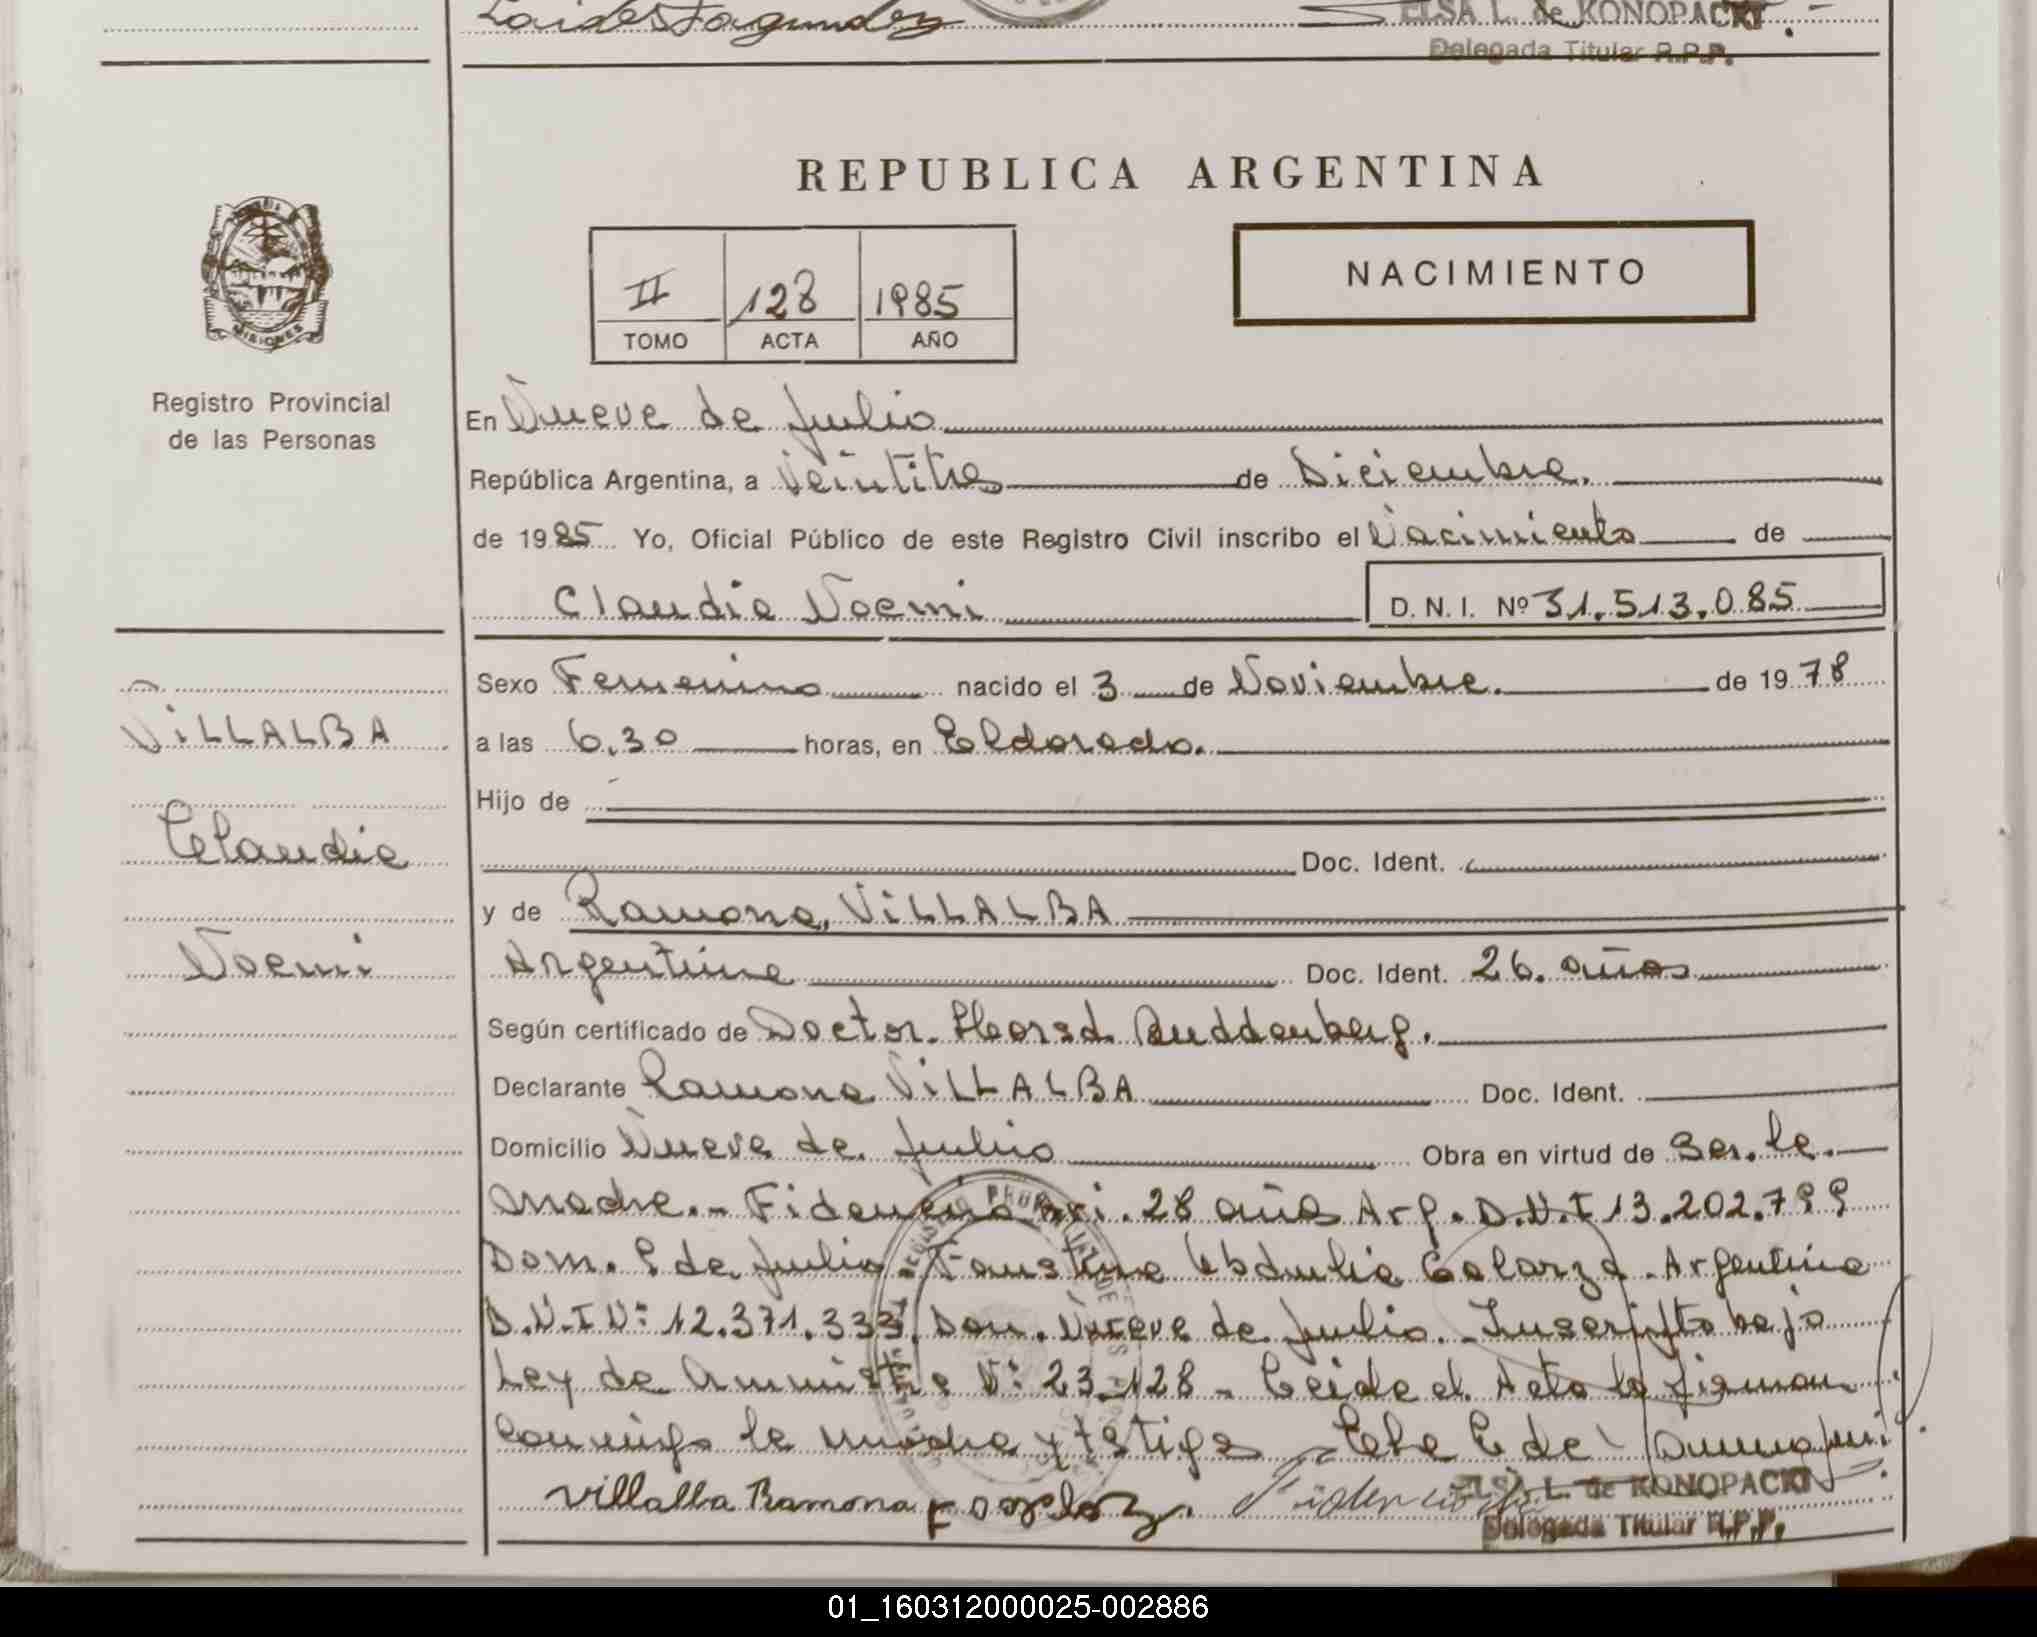 Laides Fagundez
ELSA L. de KONOPACKI
Delegada Titular R.P.P.
REPUBLICA ARGENTINA
II 128 1985
TOMO ACTA AÑO
NACIMIENTO
MISIONES
Registro Provincial
de las Personas
En Nueve de Julio
República Argentina, a Veintitres de Diciembre.
de 1985 Yo, Oficial Público de este Registro Civil inscribo el Nacimiento de
Claudia Noemi D. N. I. Nº 31.513.085
VILLALBA
Claudia
Noemi
Sexo Femenino nacido el 3 de Noviembre. de 1978
a las 6.30 horas, en Eldorado.
Hijo de
Doc. Ident.
y de Ramona, VILLALBA
Argentina Doc. Ident. 26. años
Según certificado de Doctor. Horsd Buddenberg.
Declarante Ramona VILLALBA Doc. Ident.
Domicilio Nueve de Julio Obra en virtud de Ser. la.
madre.- Fidencio 28 años Arg. D.N.I 13.202.799
Dom. 9 de Julio. Faustina Galarza. Argentina
D.N.I N: 12.371.333. Dom. Nueve de Julio. Inscripto bajo
Ley de Amnistia N: 23.128 - Leida el Acta la firman
conmigo la madre y testigos
Villalba Ramona Fidencio
ELSA L. de KONOPACKI
Delegada Titular R.P.P.
01_160312000025-002886